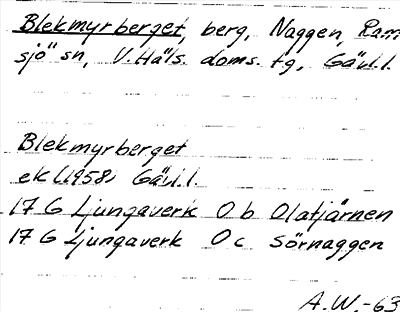 Blekmyrberget, berg, Naggen, Ram
sjö sn, V. Häls. doms. tg, Gävl.l.
Blekmyrberget
ek (1958) Gävl.l.
17 G Ljungaverk 0 b Olatjärnen
17 G Ljungaverk 0 c Sörnaggen
A.W.-63